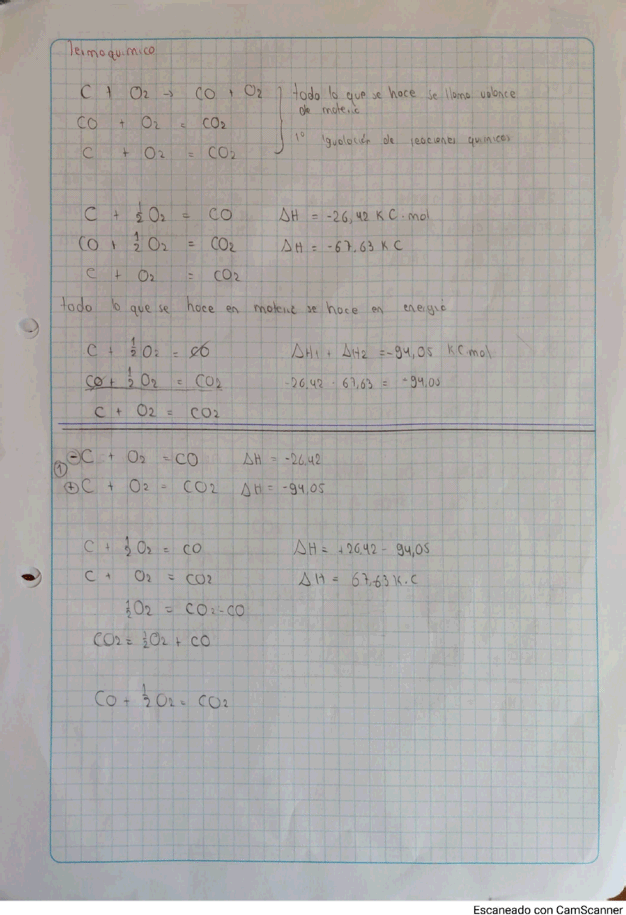 Termoquimica
C + O2 → CO + O2 todo lo que se hace se llama valance
de materia
CO + O2 = CO2
1° Igualación de reaciones quimicas
C + O2 = CO2
C + 1/2 O2 = CO ΔH = -26,42 KC·mol
CO + 1/2 O2 = CO2 ΔH = -67.63 KC
C + O2 = CO2
todo lo que se hace en materia se hace en energia
C + 1/2 O2 = CO ΔH1 + ΔH2 = -94,05 KCmol
CO + 1/2 O2 = CO2 -26,42 - 67,63 = -94,05
C + O2 = CO2
① ⊖ C + O2 = CO ΔH = -26,42
⊕ C + O2 = CO2 ΔH = -94,05
C + 1/2 O2 = CO ΔH = +26,42 - 94,05
C + O2 = CO2 ΔH = 67,63 K.C
1/2 O2 = CO2-CO
CO2 = 1/2 O2 + CO
CO + 1/2 O2 = CO2
Escaneado con CamScanner